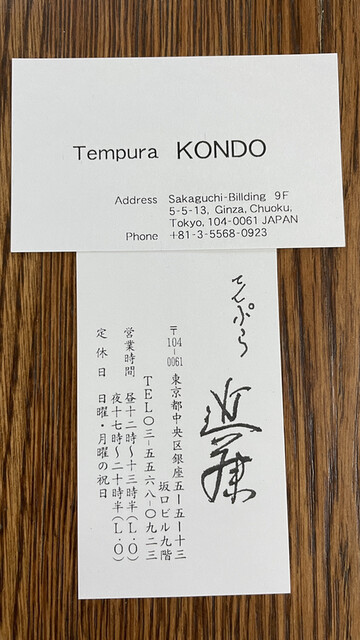 Tempura KONDO
Address Sakaguchi-Billding 9F
5-5-13, Ginza, Chuoku,
Tokyo, 104-0061 JAPAN
Phone +81-3-5568-0923
てんぷら
近藤
〒104-0061 東京都中央区銀座五ー五ー十三
坂口ビル九階
TEL〇三-五五六八-〇九二三
営業時間 昼十二時〜十三時半(L.O)
夜十七時〜二十時半(L.O)
定休日 日曜・月曜の祝日